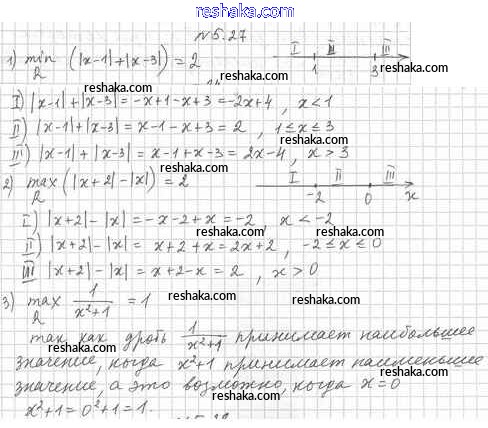 №5.27
1) min (|x-1|+|x-3|) = 2 I II III
R 1 3
reshaka.com reshaka.com
I) |x-1|+|x-3| = -x+1-x+3 = -2x+4 , x<1
II) |x-1|+|x-3| = x-1-x+3 = 2 , 1≤x≤3
III) |x-1|+|x-3| = x-1+x-3 = 2x-4 , x>3
reshaka.com reshaka.com
2) max (|x+2|-|x|) = 2 I II III
R -2 0 x
I) |x+2|-|x| = -x-2+x = -2 , x<-2
reshaka.com reshaka.com
II) |x+2|-|x| = x+2+x = 2x+2 , -2≤x≤0
III |x+2|-|x| = x+2-x = 2 , x>0
reshaka.com reshaka.com
3) max 1/(x²+1) = 1
R
reshaka.com
так как дробь 1/(x²+1) принимает наибольшее
reshaka.com reshaka.com
значение, когда x²+1 принимает наименьшее
значение, а это возможно, когда x=0
reshaka.com reshaka.com
x²+1=0²+1=1.